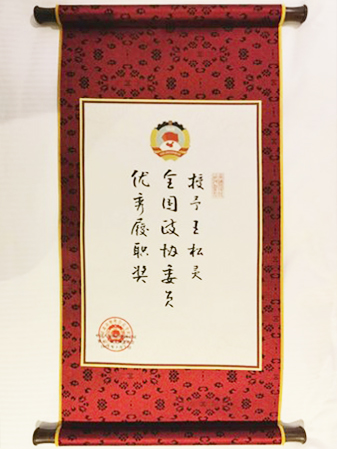 授予王松灵
全国政协委员
优秀履职奖